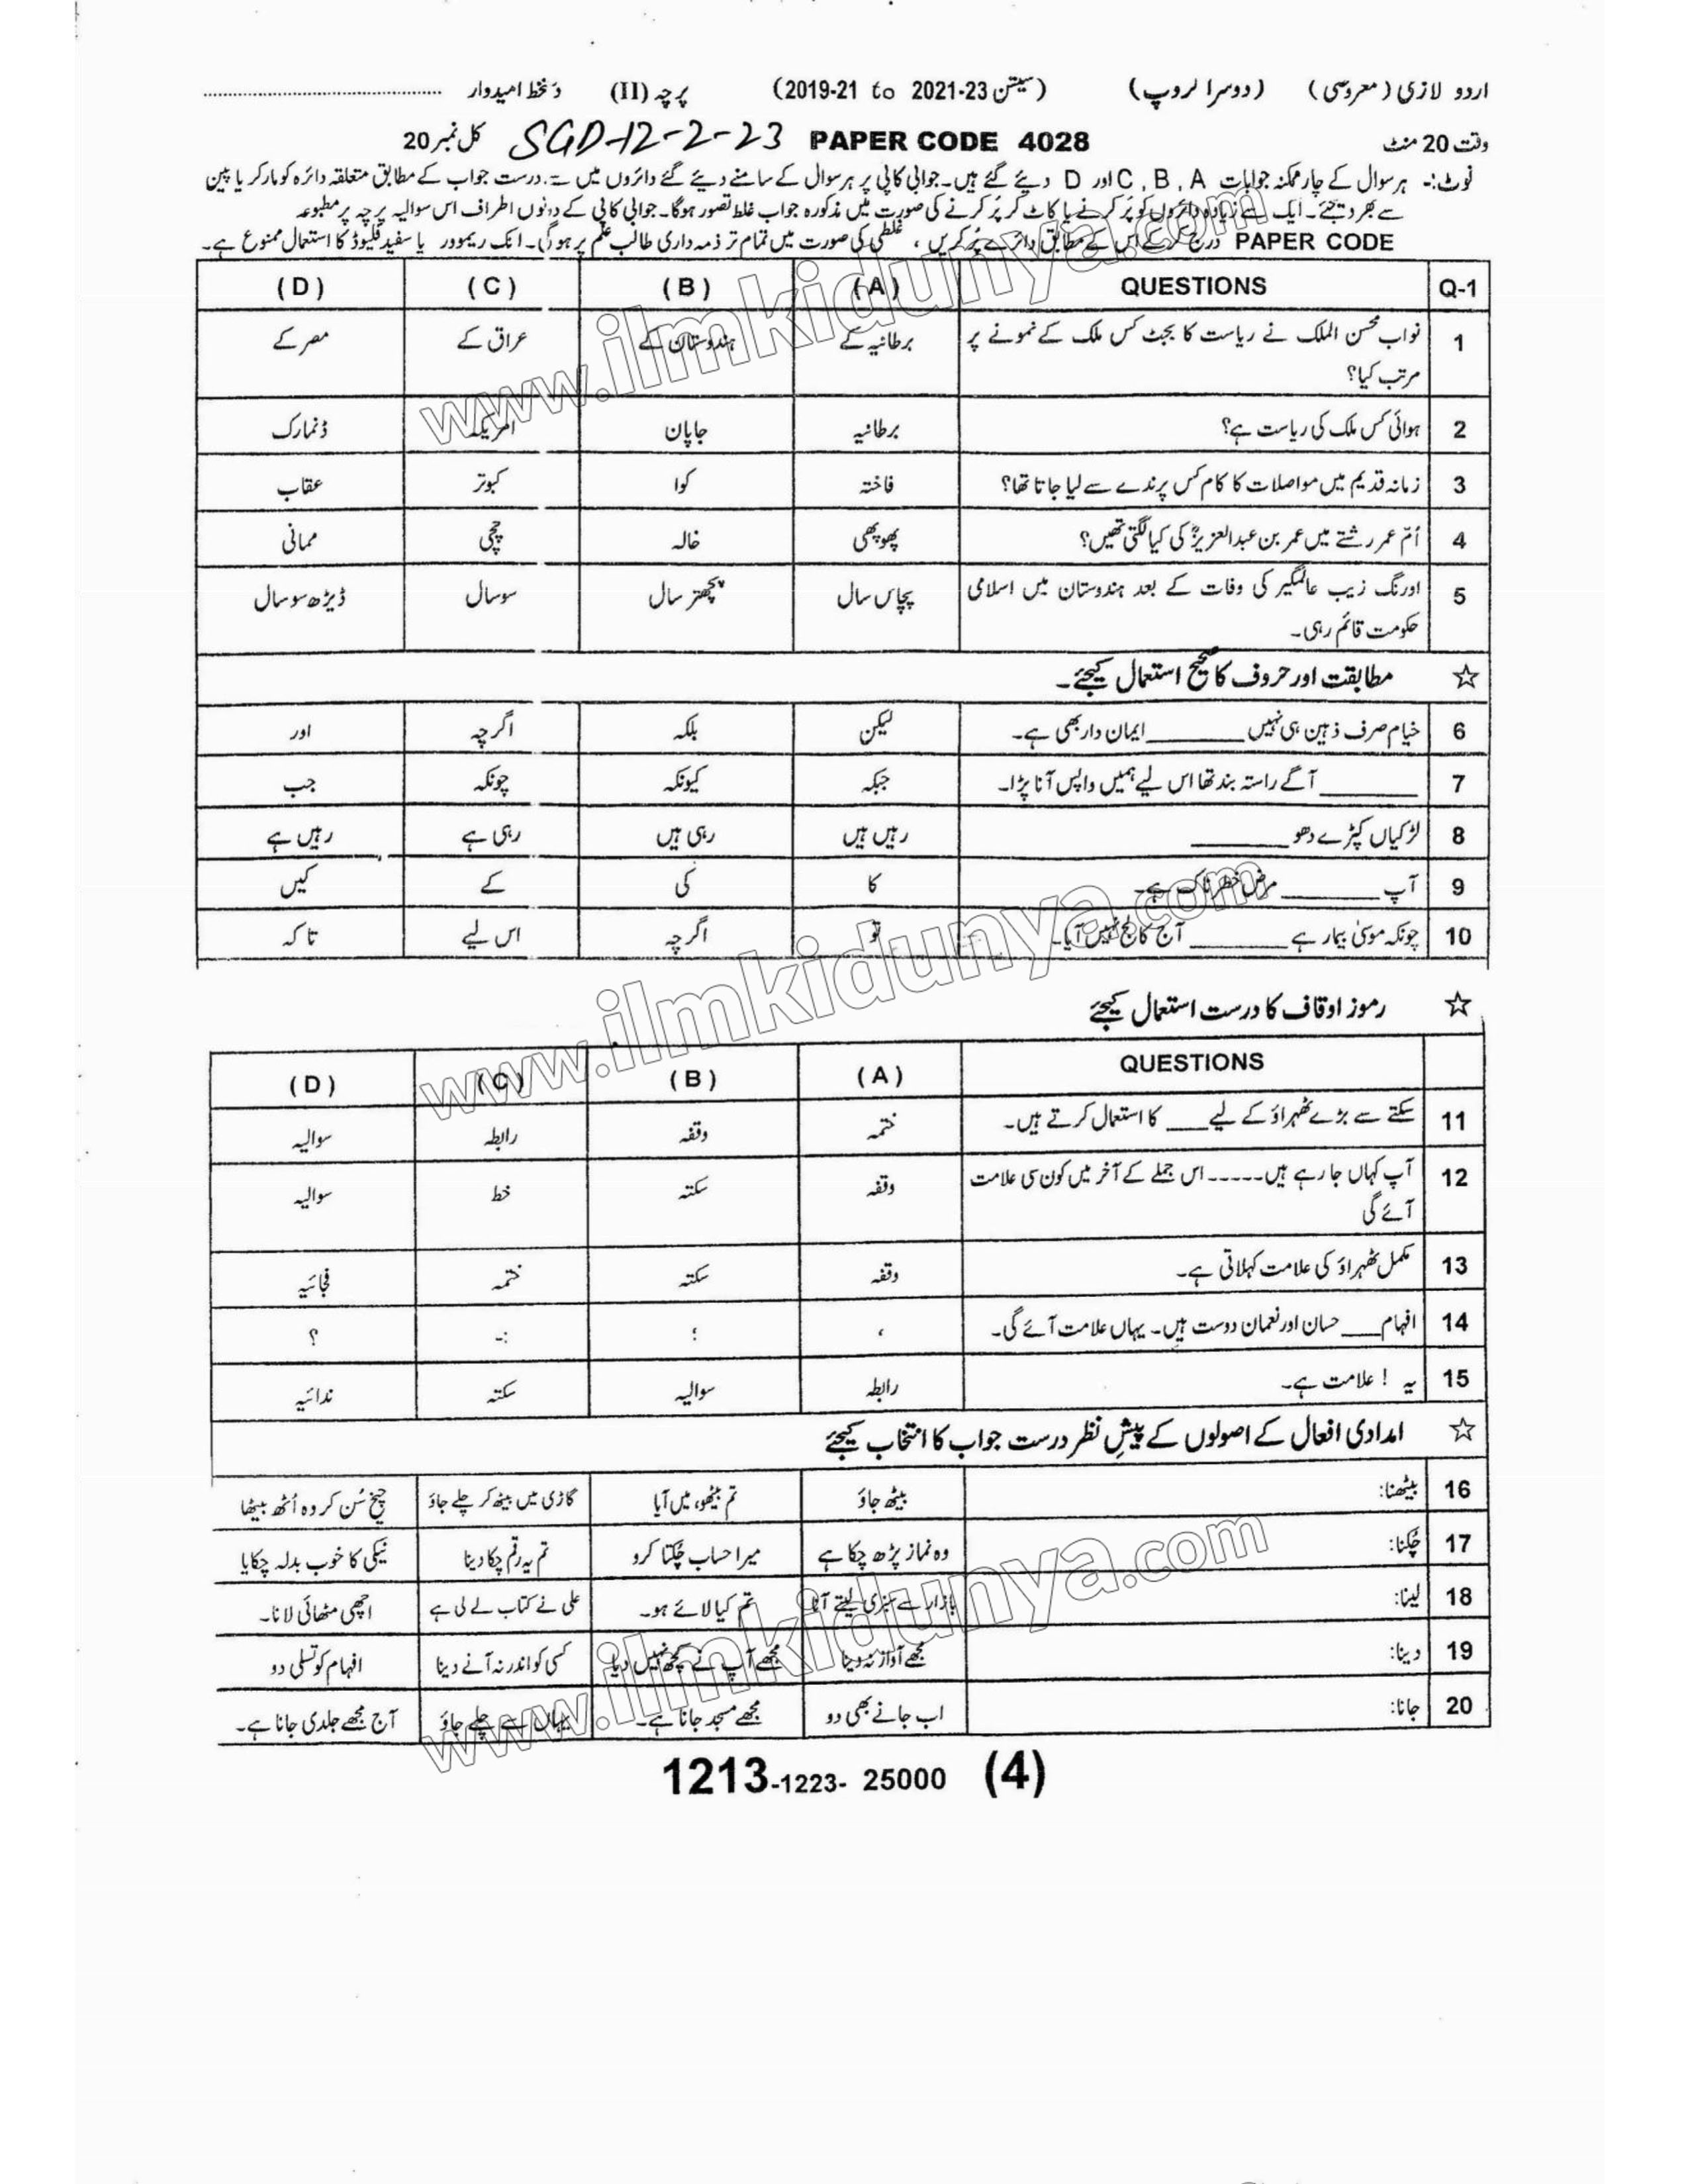 اردو لازمی (معروضی) (دوسرا گروپ) (سیشن 2019-21 to 2021-23) پرچہ (II) دستخط امیدوار
وقت 20 منٹ PAPER CODE 4028 SGD-12-2-23 کل نمبر 20
نوٹ:- ہر سوال کے چار ممکنہ جوابات C , B , A اور D دیئے گئے ہیں۔ جوابی کاپی پر ہر سوال کے سامنے دیئے گئے دائروں میں سے درست جواب کے مطابق متعلقہ دائرہ کو مارکر یا پین
سے بھر دیجئے۔ ایک سے زیادہ دائروں کو پُر کرنے یا کاٹ کر پُر کرنے کی صورت میں مذکورہ جواب غلط تصور ہوگا۔ جوابی کاپی کے دونوں اطراف اس سوالیہ پرچہ پر مطبوعہ
PAPER CODE درج کر کے اس کے مطابق دائرے پُر کریں ، غلطی کی صورت میں تمام تر ذمہ داری طالب علم پر ہوگی۔ انک ریموور یا سفید فلیوڈ کا استعمال ممنوع ہے۔
Q-1 QUESTIONS (A) (B) (C) (D)
1 نواب محسن الملک نے ریاست کا بجٹ کس ملک کے نمونے پر برطانیہ کے ہندوستان کے عراق کے مصر کے
مرتب کیا؟
2 ہوائی کس ملک کی ریاست ہے؟ برطانیہ جاپان امریکہ ڈنمارک
3 زمانہ قدیم میں مواصلات کا کام کس پرندے سے لیا جاتا تھا؟ فاختہ کوا کبوتر عقاب
4 اُمّ عمر رشتے میں عمر بن عبدالعزیزؒ کی کیا لگتی تھیں؟ پھوپھی خالہ چچی ممانی
5 اورنگ زیب عالمگیر کی وفات کے بعد ہندوستان میں اسلامی پچاس سال پچھتر سال سو سال ڈیڑھ سو سال
حکومت قائم رہی۔
☆ مطابقت اور حروف کا صحیح استعمال کیجئے۔
6 خیام صرف ذہین ہی نہیں ______ ایمان دار بھی ہے۔ لیکن بلکہ اگرچہ اور
7 ______ آگے راستہ بند تھا اس لیے ہمیں واپس آنا پڑا۔ جبکہ کیونکہ چونکہ جب
8 لڑکیاں کپڑے دھو ______ رہیں ہیں رہی ہیں رہی ہے رہیں ہے
9 آپ ______ مرض خطرناک ہے۔ کا کی کے کیں
10 چونکہ موسیٰ بیمار ہے ______ آج کالج نہیں آیا۔ تو اگرچہ اس لیے تاکہ
☆ رموز اوقاف کا درست استعمال کیجئے
QUESTIONS (A) (B) (C) (D)
11 سکتے سے بڑے ٹھہراؤ کے لیے ___ کا استعمال کرتے ہیں۔ ختمہ وقفہ رابطہ سوالیہ
12 آپ کہاں جا رہے ہیں----- اس جملے کے آخر میں کون سی علامت وقفہ سکتہ خط سوالیہ
آئے گی
13 مکمل ٹھہراؤ کی علامت کہلاتی ہے۔ وقفہ سکتہ ختمہ فجائیہ
14 افہام ___ حسان اور نعمان دوست ہیں۔ یہاں علامت آئے گی۔ ، ؛ :- ؟
15 یہ ! علامت ہے۔ رابطہ سوالیہ سکتہ ندائیہ
☆ امدادی افعال کے اصولوں کے پیشِ نظر درست جواب کا انتخاب کیجئے
16 بیٹھنا: بیٹھ جاؤ تم بیٹھو، میں آیا گاڑی میں بیٹھ کر چلے جاؤ چیخ سُن کر وہ اُٹھ بیٹھا
17 چُکنا: وہ نماز پڑھ چکا ہے میرا حساب چُکتا کرو تم یہ رقم چکا دینا نیکی کا خوب بدلہ چکایا
18 لینا: بازار سے سبزی لیتے آنا تم کیا لائے ہو۔ علی نے کتاب لے لی ہے اچھی مٹھائی لانا۔
19 دینا: مجھے آواز نہ دینا مجھے آپ نے کچھ نہیں دیا کسی کو اندر نہ آنے دینا افہام کو تسلی دو
20 جانا: اب جانے بھی دو مجھے مسجد جانا ہے۔ یہاں سے چلے جاؤ آج مجھے جلدی جانا ہے۔
1213-1223- 25000 (4)
www.ilmkidunya.com
www.ilmkidunya.com
www.ilmkidunya.com